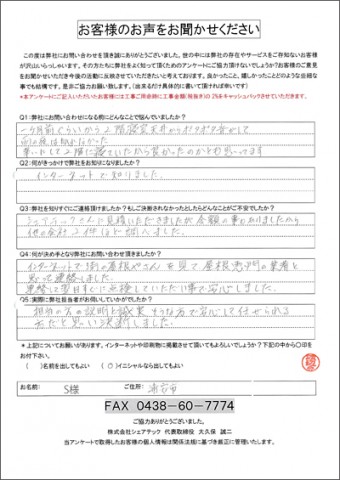 お客様のお声をお聞かせください
この度は弊社にお問い合わせを頂き誠にありがとうございました。世の中には弊社の存在やサービスをご存知ないお客様
が沢山いらっしゃいます。その方たちに弊社をよく知って頂くためのアンケートにご協力頂けないでしょうか？お客様のご意見
をお聞かせいただき今後の活動に反映させていただきたいと考えております。良かったこと、嬉しかったことどのような些細な
事でも結構です。是非ご協力お願い致します。（出来るだけ具体的に書いて頂ければ幸いです）
*本アンケートにご記入いただいたお客様には工事ご用命時に工事金額(税抜き)の2%をキャッシュバックさせていただきます。
Q1：弊社にお問い合わせになる前にどんなことで悩んでいましたか？
一ヶ月前ぐらいから2階寝室天井からポタポタ音がして
雨の夜は
2階に寝ていたから
Q2：何がきっかけで弊社をお知りになりましたか？
インターネットで知りました。
Q3：弊社を知りすぐにご連絡頂けましたか？もしご決断されなかったとしたらどんなことがご不安でしたか？
シェアテックさんに見積いただきましたが金額の事もありましたから
他の会社2件ほど
Q4：何が決め手となり弊社にお問い合わせ頂きましたか？
インターネットで街の屋根やさんを見て屋根専門の業者と
思って連絡しました。
連絡して翌日すぐに点検していただい事で安心しました。
Q5：実際に弊社担当者がお伺いしていかがでしたか？
担当の方の説明と誠実そうな方で安心して任せられる
方だと思い決断しました。
*上記についてお願いがあります。インターネットや印刷物に掲載させて頂いてもよろしいでしょうか？下記の中から○印を
お付け下さい。
（　）名前を出してもよい　（○）イニシャルなら出してもよい
お名前： S様 ご住所： 浦安市
FAX 0438-60-7774
ご協力ありがとうございました。
株式会社シェアテック 代表取締役 大久保 誠二
当アンケートで取得したお客様の個人情報は関係法規に基づき厳正に管理いたします。